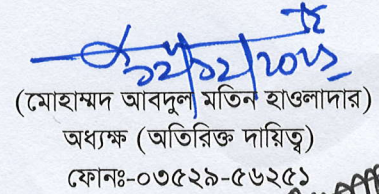 ১২/১২/২০২১
(মোহাম্মদ আবদুল মতিন হাওলাদার)
অধ্যক্ষ (অতিরিক্ত দায়িত্ব)
ফোনঃ-০৩৫২৯-৫৬২৫১